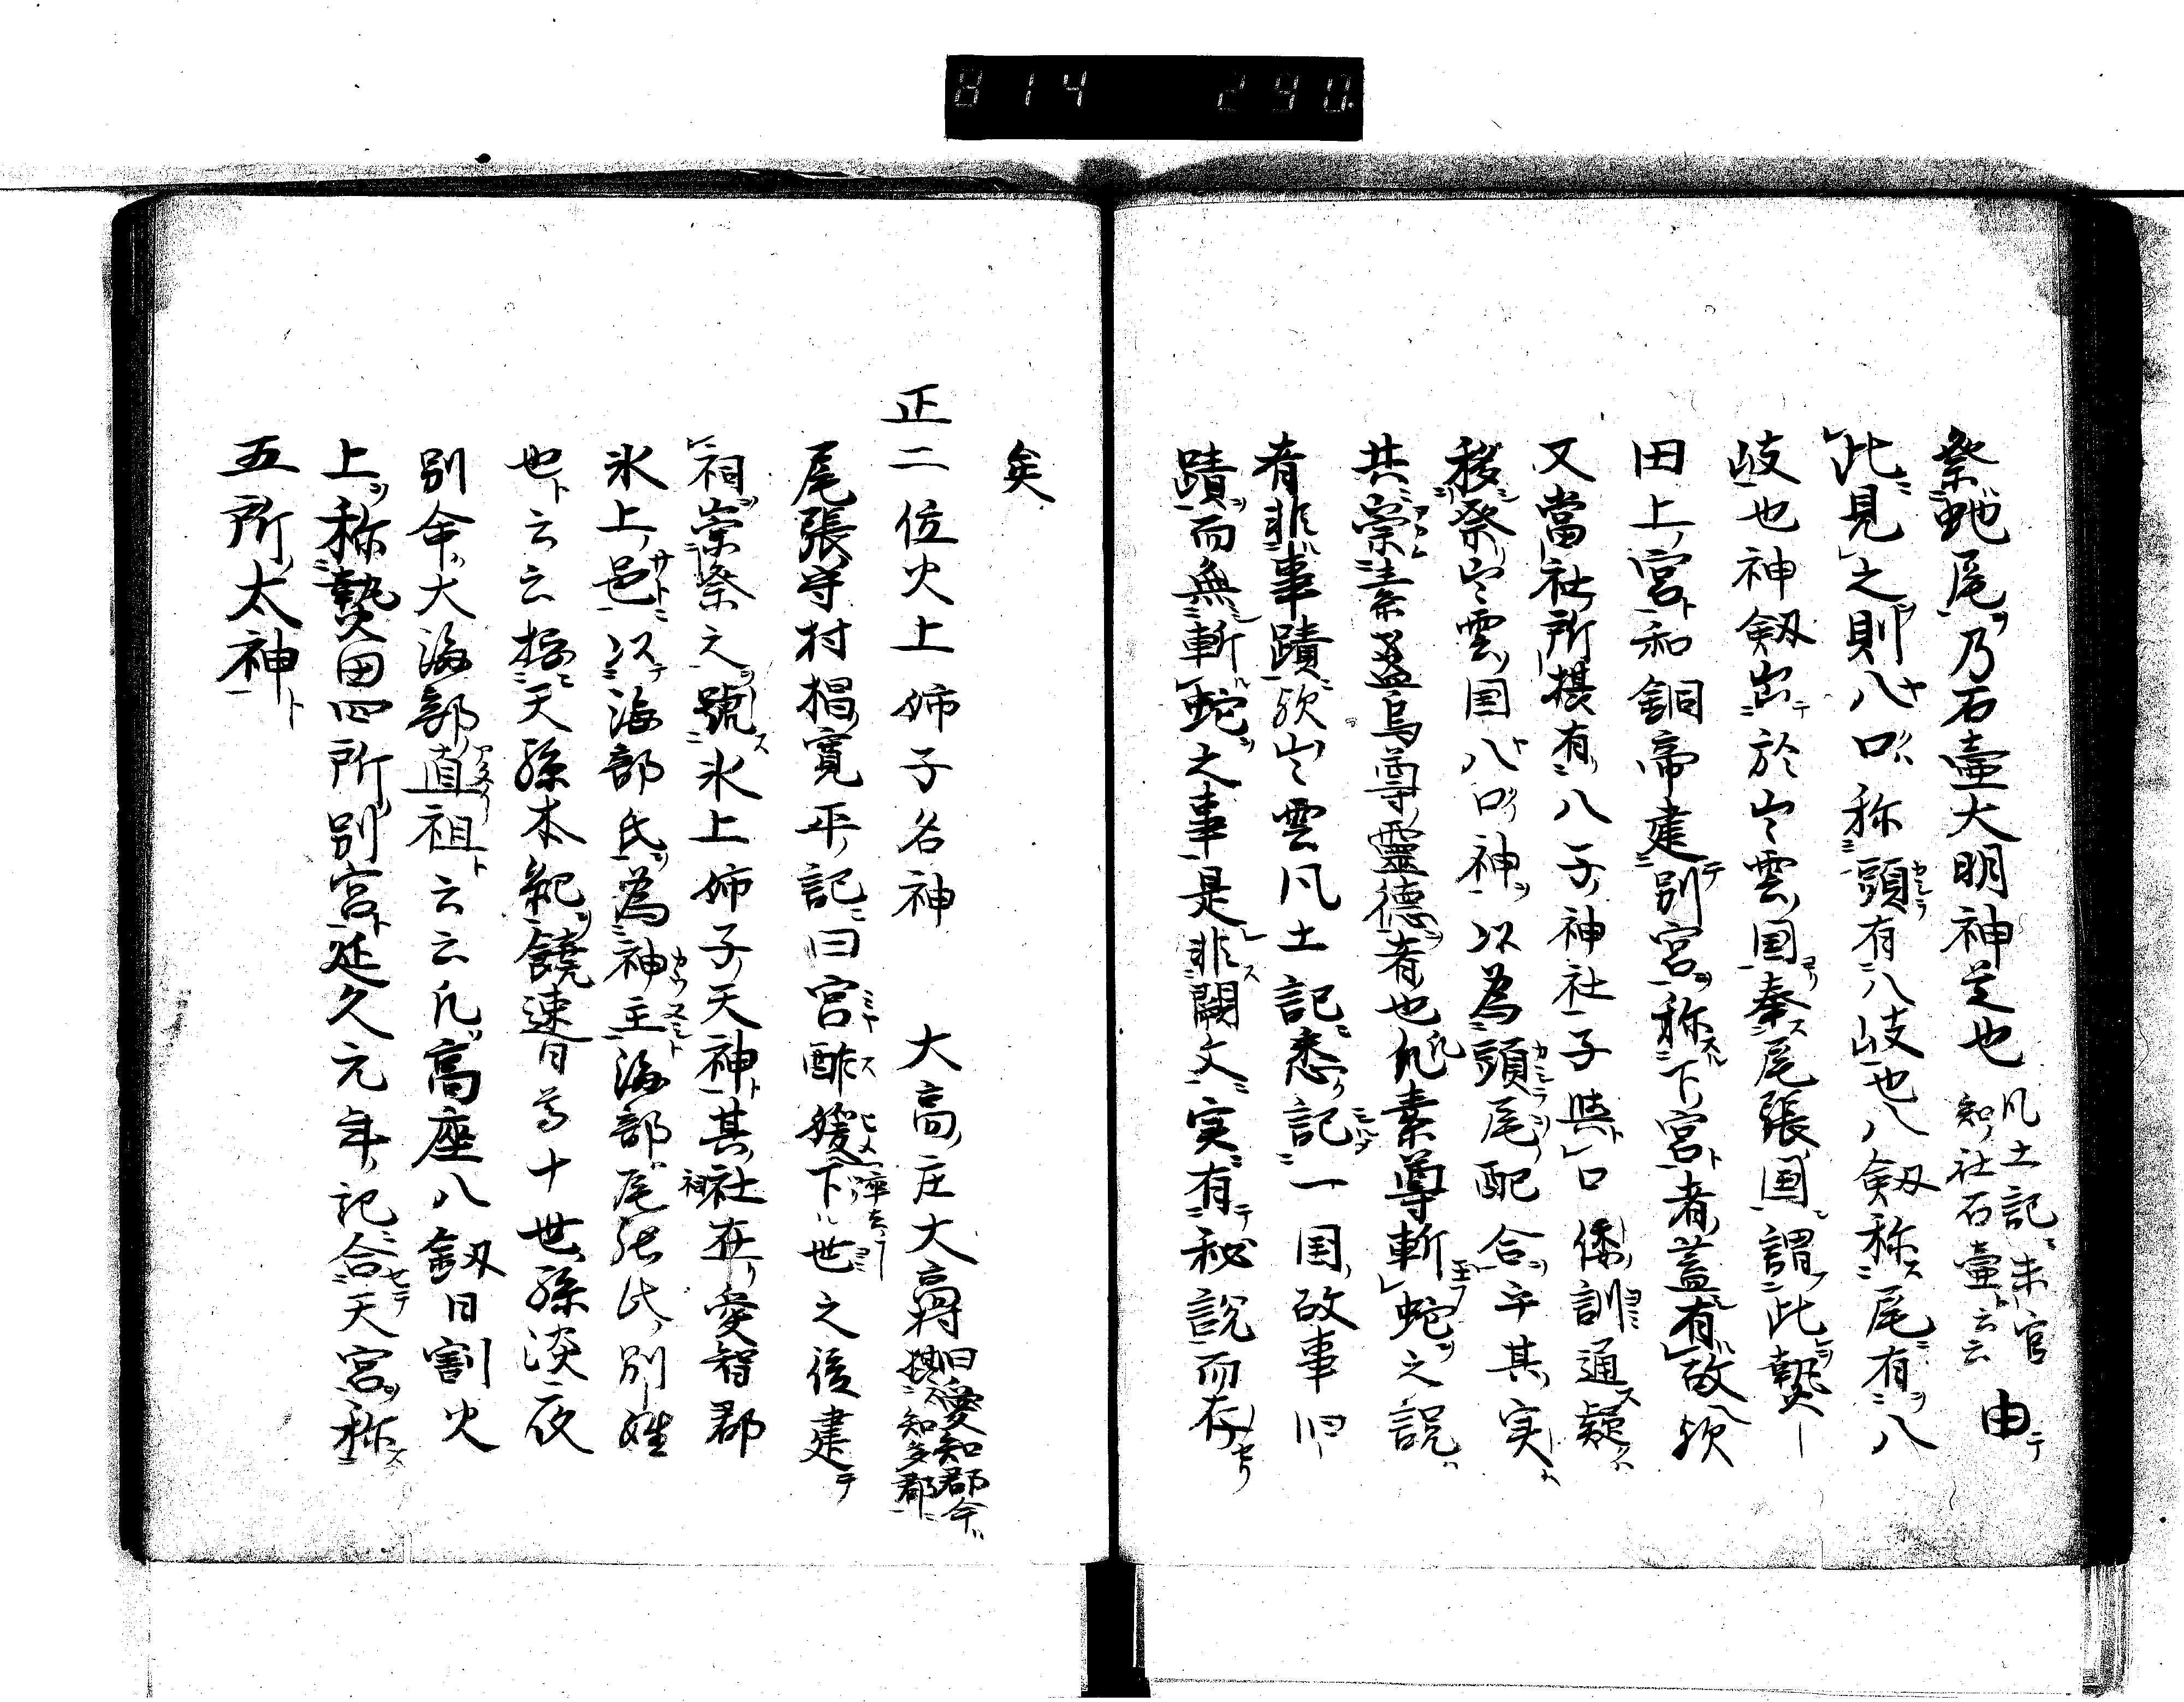 814 290.
祭虵尾乃石壷大明神是也 凡土記未官知社石壷云云 由
此見之則八口称頭有八岐也八剱称尾有八
岐也神剱出於出雲国奉尾張国謂此贄
田上宮和銅帝建別宮称下宮者蓋有故欤
又當社所摂有八子神社子與口倭訓通疑
移祭出雲国八口神以為頭尾配合乎其実
共崇素盞烏尊霊德者也凡素尊斬蛇之説
者非事蹟欤出雲凡土記悉記一国故事旧
蹟而無斬蛇之事是非闕文実有秘説而存
矣
正二位火上姉子名神 大高庄大高村 旧愛知郡今摂知多郡
尾張守村椙寛平記曰宮酢媛下世之後建
祠崇祭之號氷上姉子天神其社在愛智郡
氷上邑以海部氏為神主海部尾張氏別姓
也云云按天孫本紀饒速日尊十世孫淡夜
別命大海部直祖云云凡高座八剱日割火
上称贄田四所別宮延久元年記合天宮称
五所太神